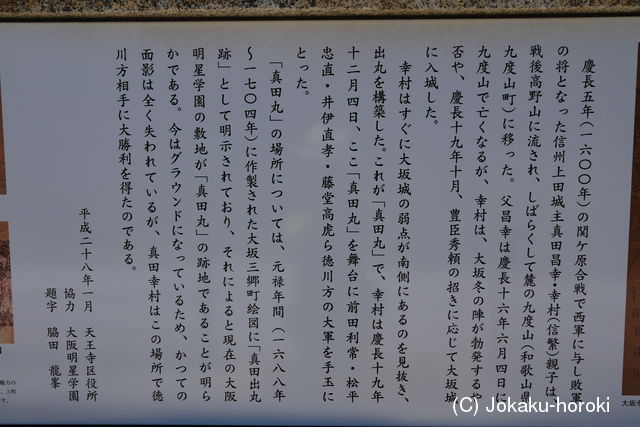 慶長五年(一六〇〇年)の関ケ原合戦で西軍に与し敗軍
の将となった信州上田城主真田昌幸・幸村(信繁)親子は、
戦後高野山に流され、しばらくして麓の九度山(和歌山県
九度山町)に移った。父昌幸は慶長十六年六月四日に
九度山で亡くなるが、幸村は、大坂冬の陣が勃発するや
否や、慶長十九年十月、豊臣秀頼の招きに応じて大坂城
に入城した。
幸村はすぐに大坂城の弱点が南側にあるのを見抜き、
出丸を構築した。これが「真田丸」で、幸村は慶長十九年
十二月四日、ここ「真田丸」を舞台に前田利常・松平
忠直・井伊直孝・藤堂高虎ら徳川方の大軍を手玉に
とった。
「真田丸」の場所については、元禄年間(一六八八年
〜一七〇四年)に作製された大坂三郷町絵図に「真田出丸
跡」として明示されており、それによると現在の大阪
明星学園の敷地が「真田丸」の跡地であることが明ら
かである。今はグラウンドになっているため、かつての
面影は全く失われているが、真田幸村はこの場所で徳
川方相手に大勝利を得たのである。
平成二十八年一月 天王寺区役所
協力 大阪明星学園
題字 脇田 龍峯
大坂冬
(C) Jokaku-horoki